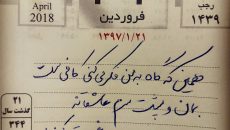 April
2018
فروردین
رجب
۱۴۳۹
۱۳۹۷/۱/۲۱
همین که گاه به من فکر می کنی کافی است
بمان و پشت سرم عاشقانه
۲۱
گذشت سال
۳۴۴